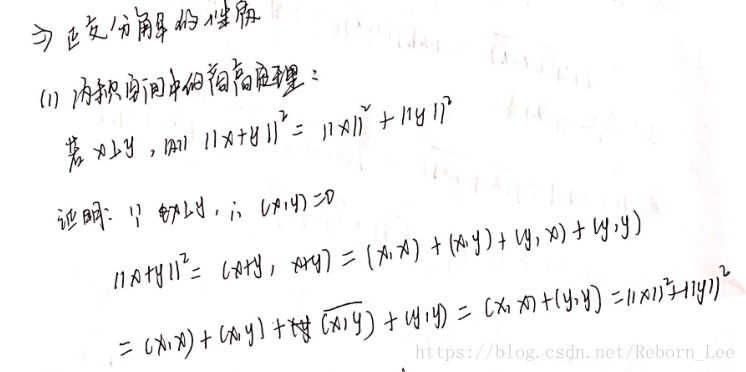 ⇒ 正交分解的性质
(1) 内积空间中的勾高定理:
若 x⊥y, 则 ||x+y||² = ||x||² + ||y||²
证明: ∵ x⊥y, ∴ (x,y)=0
||x+y||² = (x+y, x+y) = (x,x) + (x,y) + (y,x) + (y,y)
= (x,x) + (x,y) + \overline{(x,y)} + (y,y) = (x,x) + (y,y) = ||x||² + ||y||²
https://blog.csdn.net/Reborn_Lee